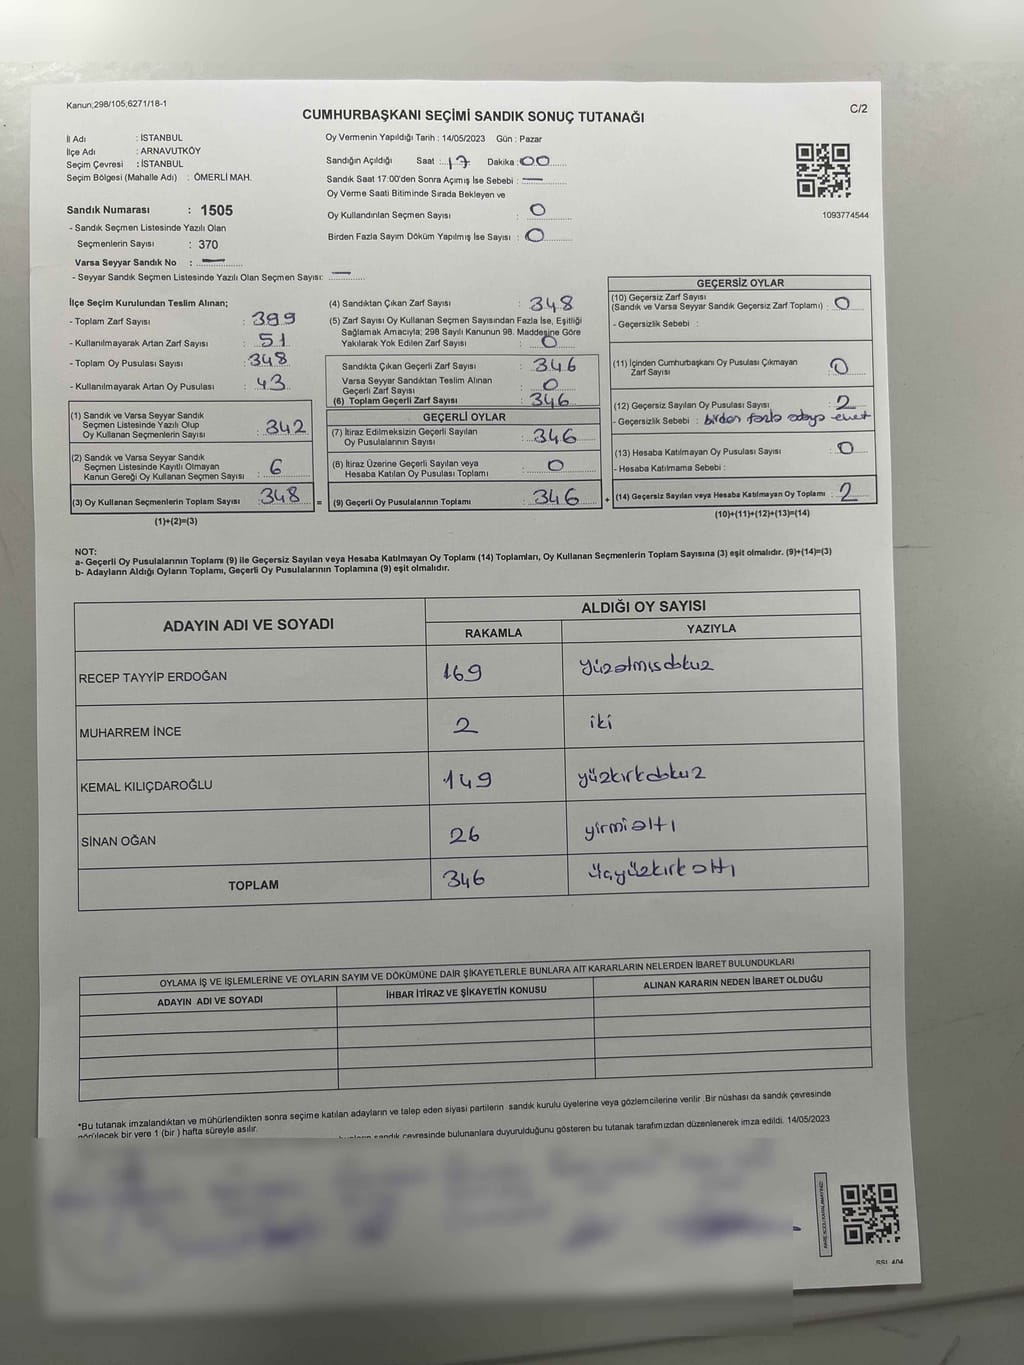 Kanun;298/105;6271/18-1
C/2
CUMHURBAŞKANI SEÇİMİ SANDIK SONUÇ TUTANAĞI
İl Adı : İSTANBUL
İlçe Adı : ARNAVUTKÖY
Seçim Çevresi : İSTANBUL
Seçim Bölgesi (Mahalle Adı) : ÖMERLİ MAH.
Sandık Numarası : 1505
- Sandık Seçmen Listesinde Yazılı Olan
Seçmenlerin Sayısı : 370
Varsa Seyyar Sandık No : —
- Seyyar Sandık Seçmen Listesinde Yazılı Olan Seçmen Sayısı: —
Oy Vermenin Yapıldığı Tarih : 14/05/2023 Gün : Pazar
Sandığın Açıldığı Saat : 17 Dakika : 00
Sandık Saat 17:00'den Sonra Açımış İse Sebebi : —
Oy Verme Saati Bitiminde Sırada Bekleyen ve
Oy Kullandırılan Seçmen Sayısı : 0
Birden Fazla Sayım Döküm Yapılmış İse Sayısı : 0
1093774544
İlçe Seçim Kurulundan Teslim Alınan;
- Toplam Zarf Sayısı : 399
- Kullanılmayarak Artan Zarf Sayısı : 51
- Toplam Oy Pusulası Sayısı : 348
- Kullanılmayarak Artan Oy Pusulası : 43
(1) Sandık ve Varsa Seyyar Sandık
Seçmen Listesinde Yazılı Olup
Oy Kullanan Seçmenlerin Sayısı : 342
(2) Sandık ve Varsa Seyyar Sandık
Seçmen Listesinde Kayıtlı Olmayan
Kanun Gereği Oy Kullanan Seçmen Sayısı : 6
(3) Oy Kullanan Seçmenlerin Toplam Sayısı : 348 =
(1)+(2)=(3)
(4) Sandıktan Çıkan Zarf Sayısı : 348
(5) Zarf Sayısı Oy Kullanan Seçmen Sayısından Fazla İse, Eşitliği
Sağlamak Amacıyla; 298 Sayılı Kanunun 98. Maddesine Göre
Yakılarak Yok Edilen Zarf Sayısı : 0
Sandıkta Çıkan Geçerli Zarf Sayısı : 346
Varsa Seyyar Sandıktan Teslim Alınan
Geçerli Zarf Sayısı : 0
(6) Toplam Geçerli Zarf Sayısı : 346
GEÇERLİ OYLAR
(7) İtiraz Edilmeksizin Geçerli Sayılan
Oy Pusulalarının Sayısı : 346
(8) İtiraz Üzerine Geçerli Sayılan veya
Hesaba Katılan Oy Pusulası Toplamı : 0
(9) Geçerli Oy Pusulalarının Toplamı : 346 +
GEÇERSİZ OYLAR
(10) Geçersiz Zarf Sayısı
(Sandık ve Varsa Seyyar Sandık Geçersiz Zarf Toplamı) : 0
- Geçersizlik Sebebi :
(11) İçinden Cumhurbaşkanı Oy Pusulası Çıkmayan
Zarf Sayısı : 0
(12) Geçersiz Sayılan Oy Pusulası Sayısı : 2
- Geçersizlik Sebebi : birden fazla adaya evet
(13) Hesaba Katılmayan Oy Pusulası Sayısı : 0
- Hesaba Katılmama Sebebi :
(14) Geçersiz Sayılan veya Hesaba Katılmayan Oy Toplamı : 2
(10)+(11)+(12)+(13)=(14)
NOT:
a- Geçerli Oy Pusulalarının Toplamı (9) ile Geçersiz Sayılan veya Hesaba Katılmayan Oy Toplamı (14) Toplamları, Oy Kullanan Seçmenlerin Toplam Sayısına (3) eşit olmalıdır. (9)+(14)=(3)
b- Adayların Aldığı Oyların Toplamı, Geçerli Oy Pusulalarının Toplamına (9) eşit olmalıdır.
ADAYIN ADI VE SOYADI
ALDIĞI OY SAYISI
RAKAMLA YAZIYLA
RECEP TAYYİP ERDOĞAN 169 yüzatmışdokuz
MUHARREM İNCE 2 iki
KEMAL KILIÇDAROĞLU 149 yüzkırkdokuz
SİNAN OĞAN 26 yirmialtı
TOPLAM 346 üçyüzkırkaltı
OYLAMA İŞ VE İŞLEMLERİNE VE OYLARIN SAYIM VE DÖKÜMÜNE DAİR ŞİKAYETLERLE BUNLARA AİT KARARLARIN NELERDEN İBARET BULUNDUKLARI
ADAYIN ADI VE SOYADI İHBAR İTİRAZ VE ŞİKAYETİN KONUSU ALINAN KARARIN NEDEN İBARET OLDUĞU
*Bu tutanak imzalandıktan ve mühürlendikten sonra seçime katılan adayların ve talep eden siyasi partilerin sandık kurulu üyelerine veya gözlemcilerine verilir .Bir nüshası da sandık çevresinde
görülecek bir yere 1 (bir ) hafta süreyle asılır.
sandık çevresinde bulunanlara duyurulduğunu gösteren bu tutanak tarafımızdan düzenlenerek imza edildi. 14/05/2023